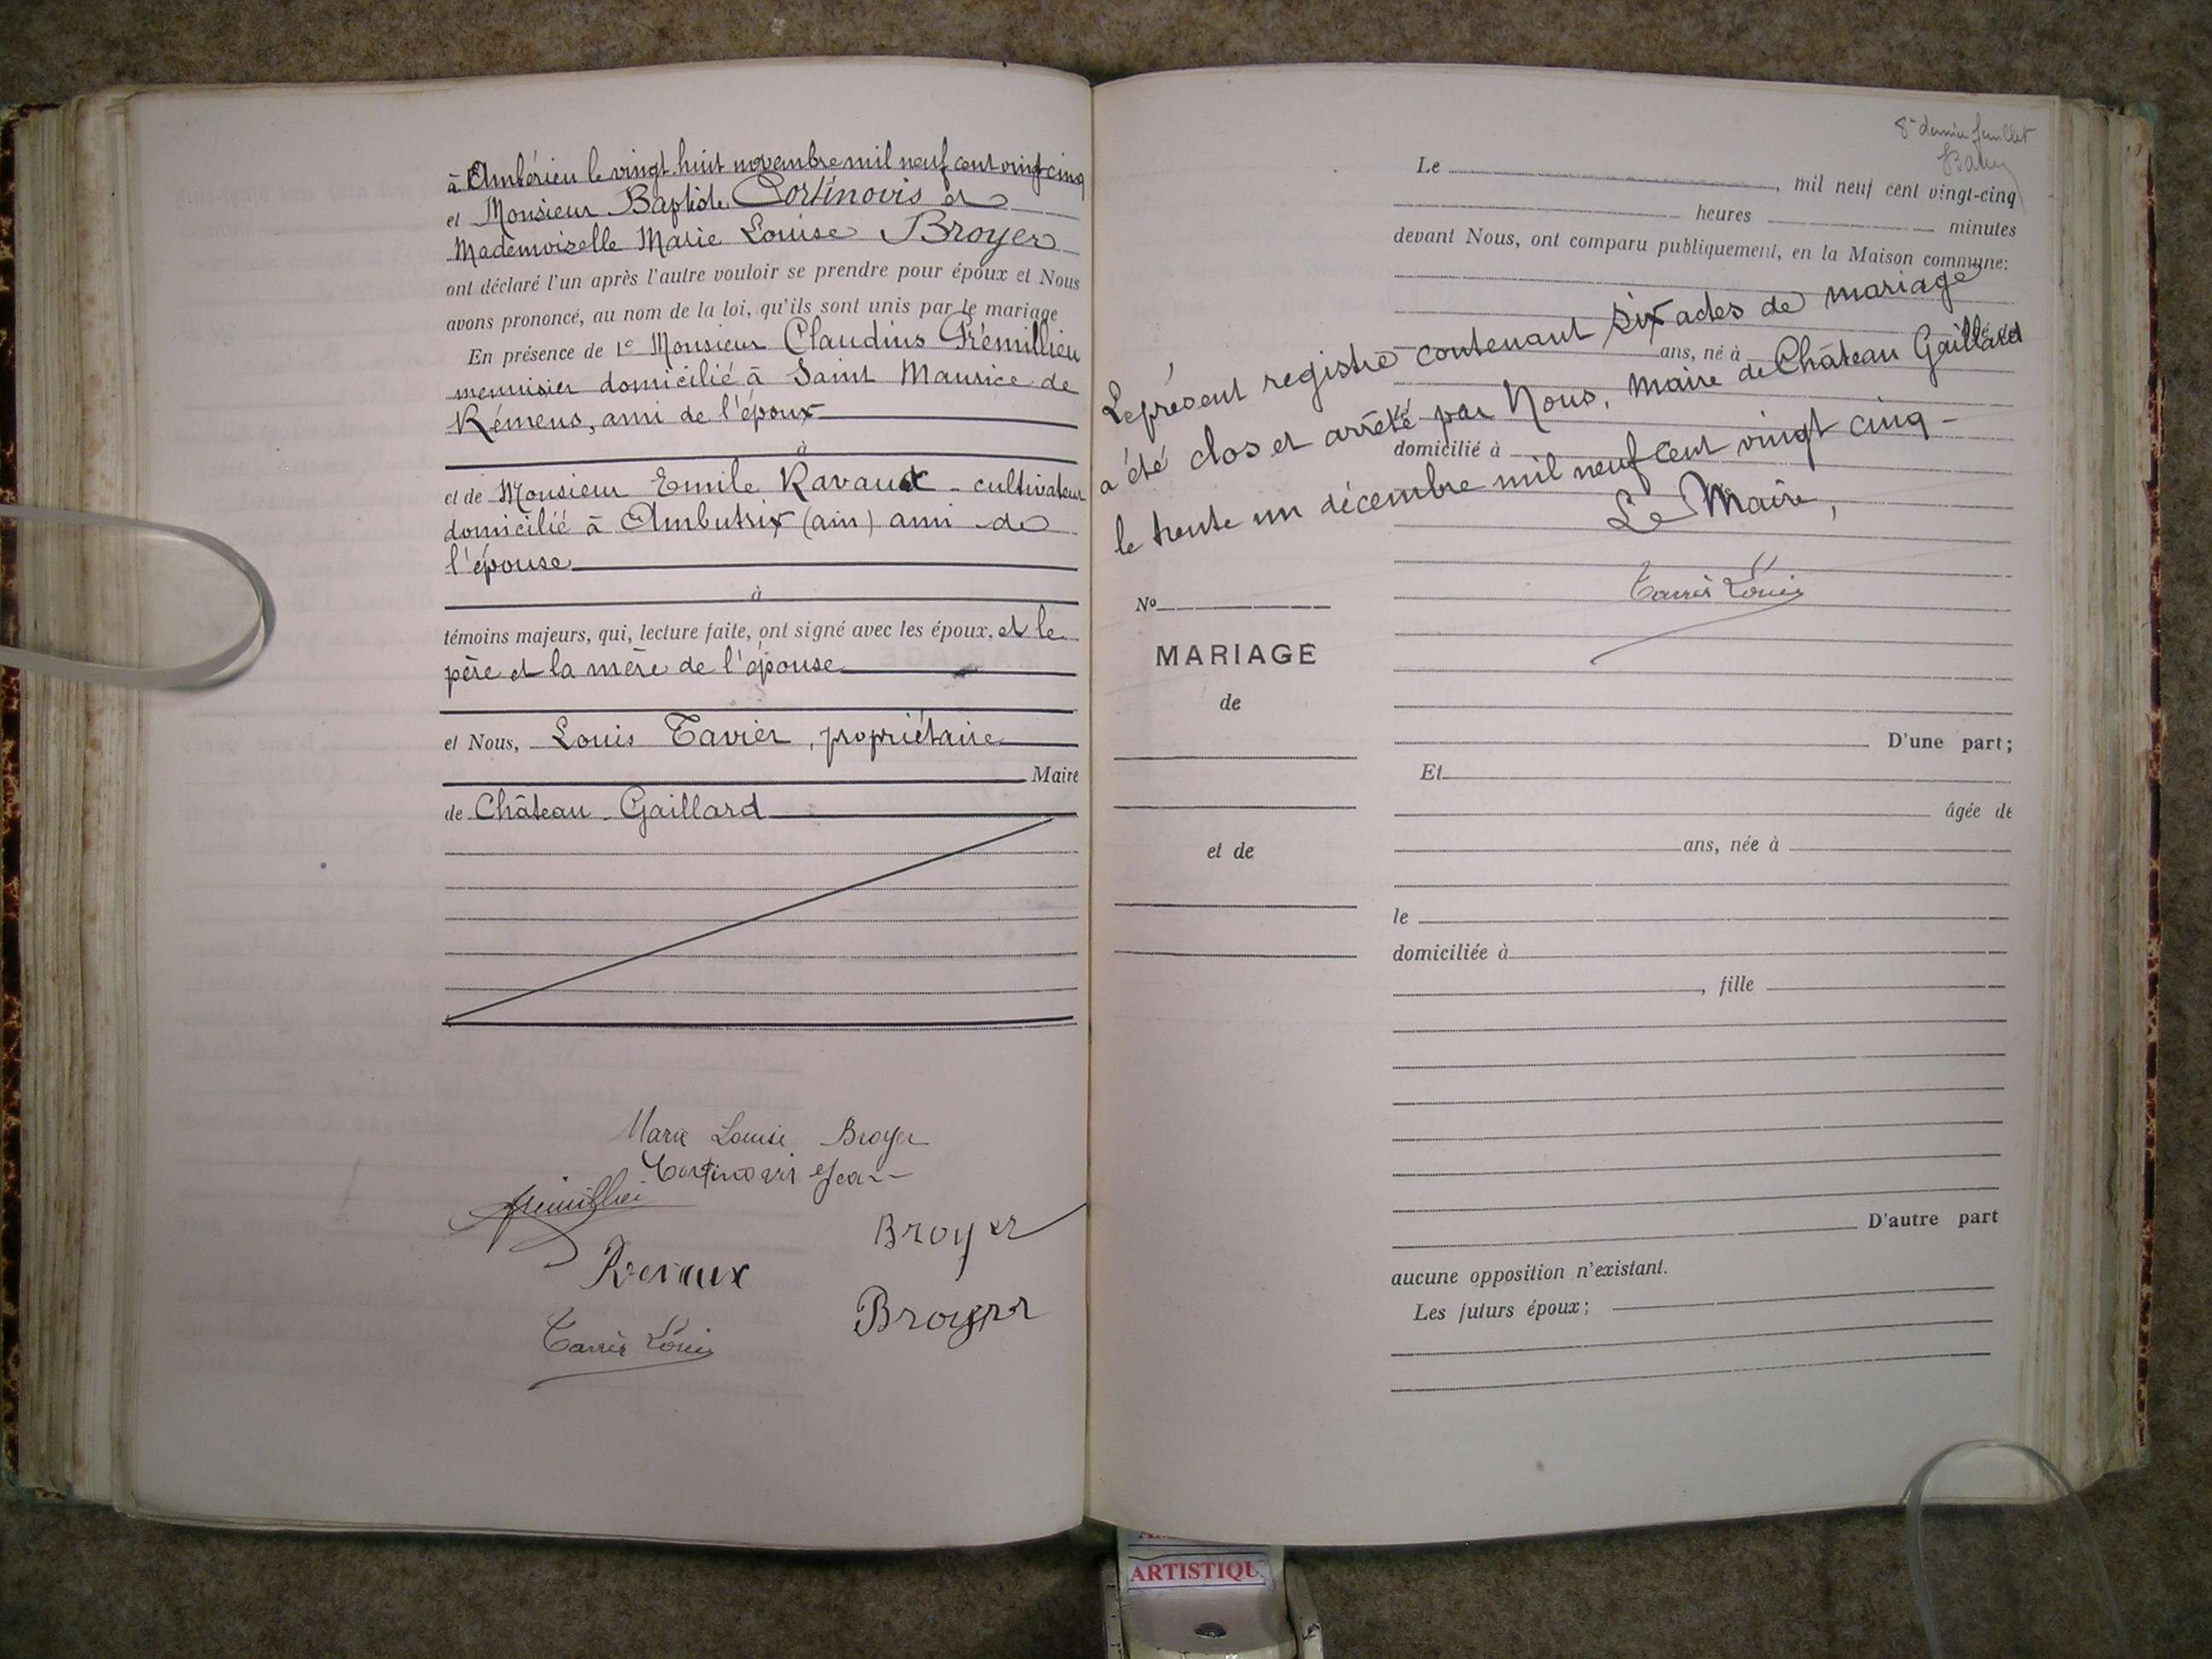 à Ambérieu le vingt huit novembre mil neuf cent vingt cinq
et Monsieur Baptiste Cortinovis et
Mademoiselle Marie Louise Broyer
ont déclaré l'un après l'autre vouloir se prendre pour époux et Nous
avons prononcé, au nom de la loi, qu'ils sont unis par le mariage
En présence de 1º Monsieur Claudius Frémillieu
menuisier domicilié à Saint Maurice de
Rémens, ami de l'époux
à
et de Monsieur Emile Ravaux - cultivateur
domicilié à Ambutrix (ain) ami de
l'épouse
à
témoins majeurs, qui, lecture faite, ont signé avec les époux, et le
père et la mère de l'épouse
et Nous, Louis Tavier, propriétaire
Maire
de Château-Gaillard
Marie Louise Broyer
Cortinovis Jean
Broyer
Ravaux
Broyer
Louis
8e dernier feuillet
Le , mil neuf cent vingt-cinq
heures minutes
devant Nous, ont comparu publiquement, en la Maison commune:
Le présent registre contenant six actes de mariage
ans, né à
a été clos et arrêté par Nous, Maire de Château Gaillard
domicilié à
le trente un décembre mil neuf cent vingt cinq -
Le Maire,
Louis
No
MARIAGE
de
et de
D'une part;
Et
âgée de
ans, née à
le
domiciliée à
, fille
D'autre part
aucune opposition n'existant.
Les futurs époux;
ARTISTIQU